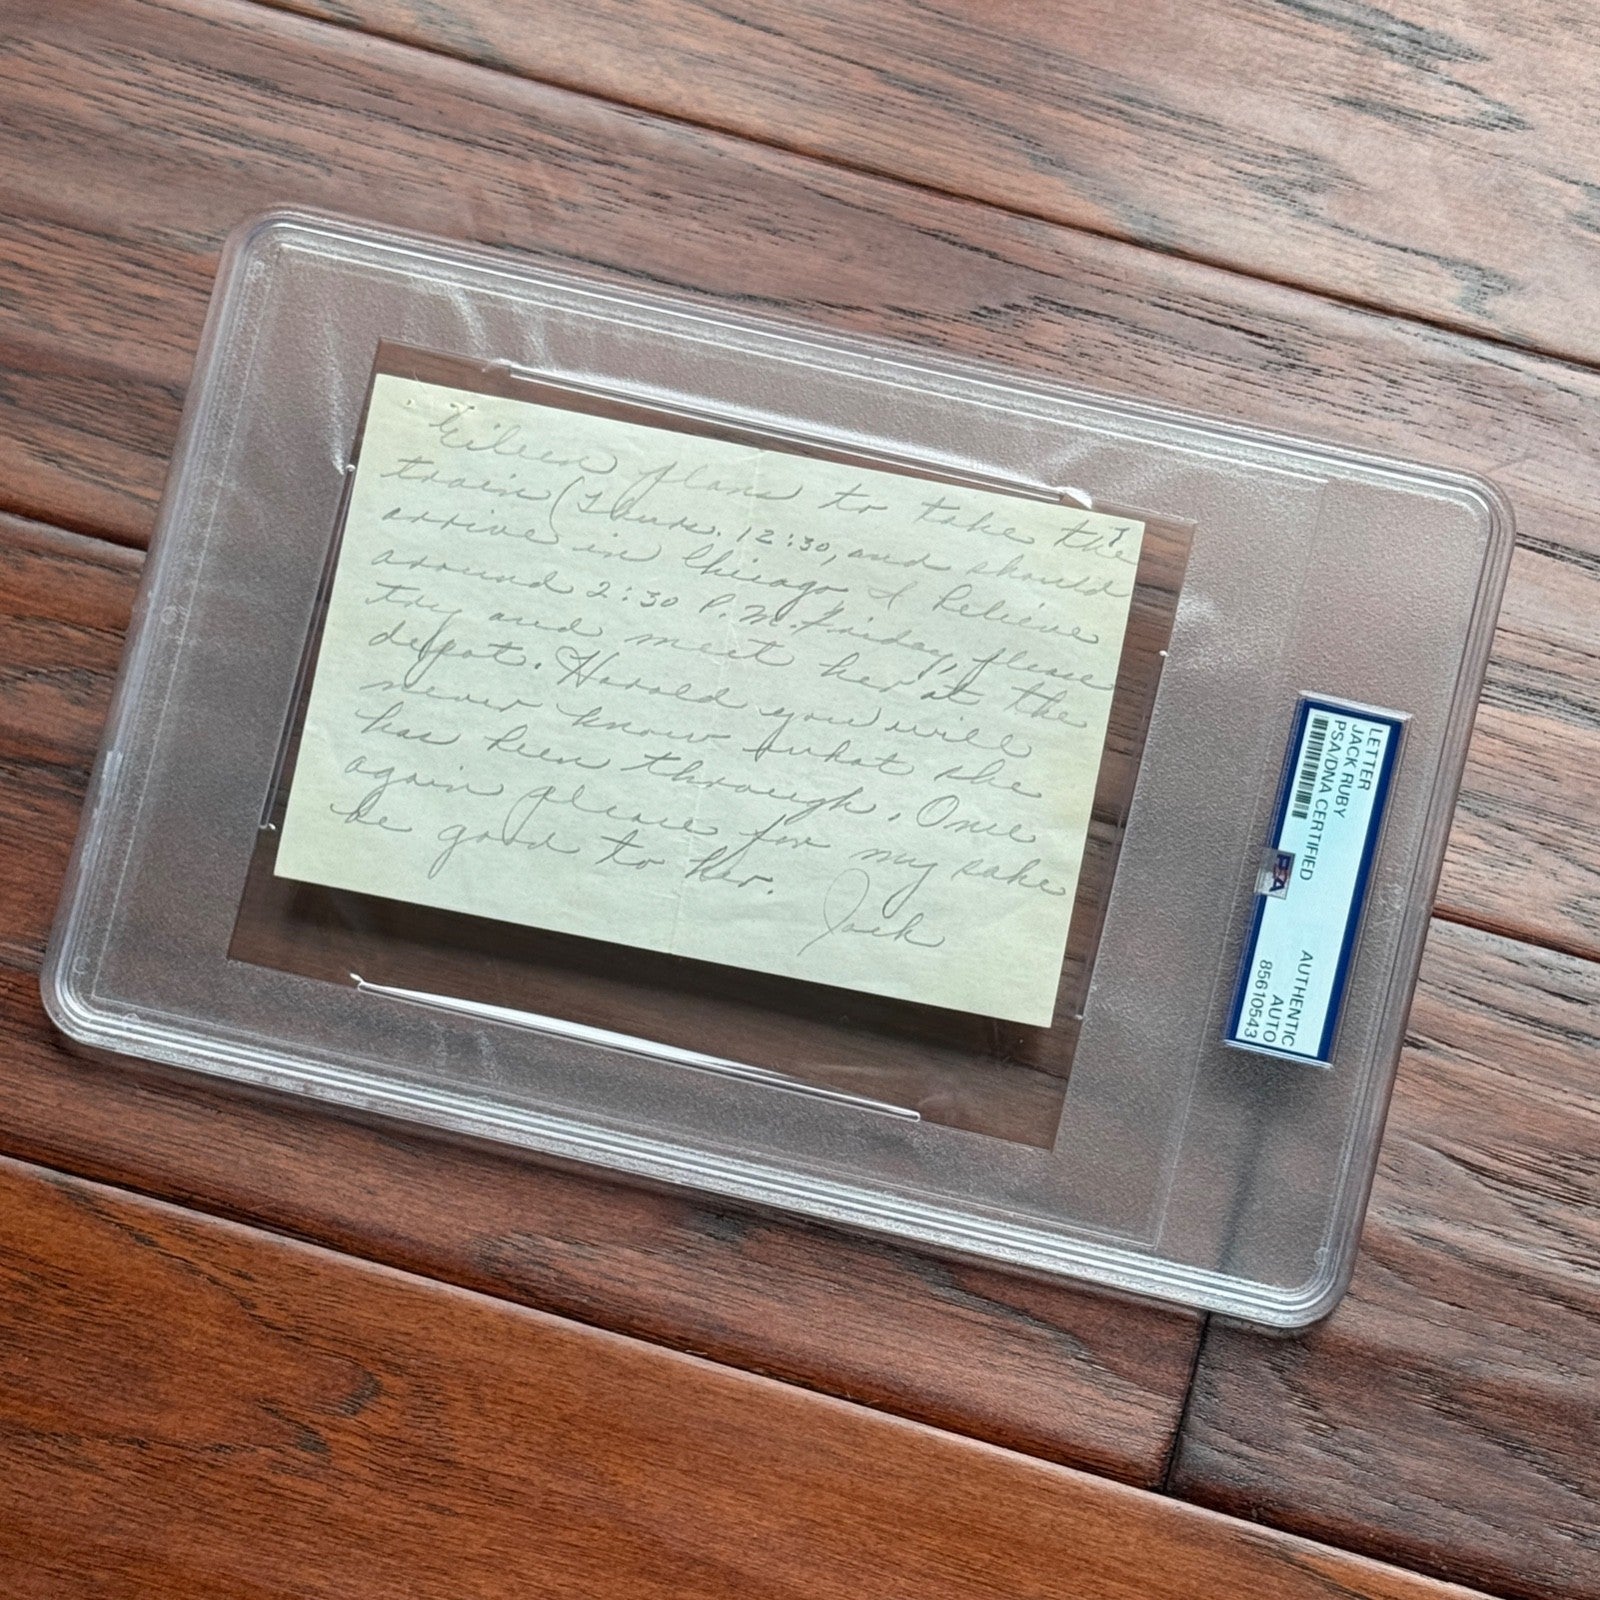 7
Eileen plans to take the
train (Thurs. 12:30, and should
arrive in Chicago I believe
around 2:30 P.M. Friday, please
try and meet her at the
depot. Harold you will
never know what she
has been through. Once
again please for my sake
be good to her.
Jack
LETTER
JACK RUBY
PSA/DNA CERTIFIED
PSA
AUTHENTIC
AUTO
85610543